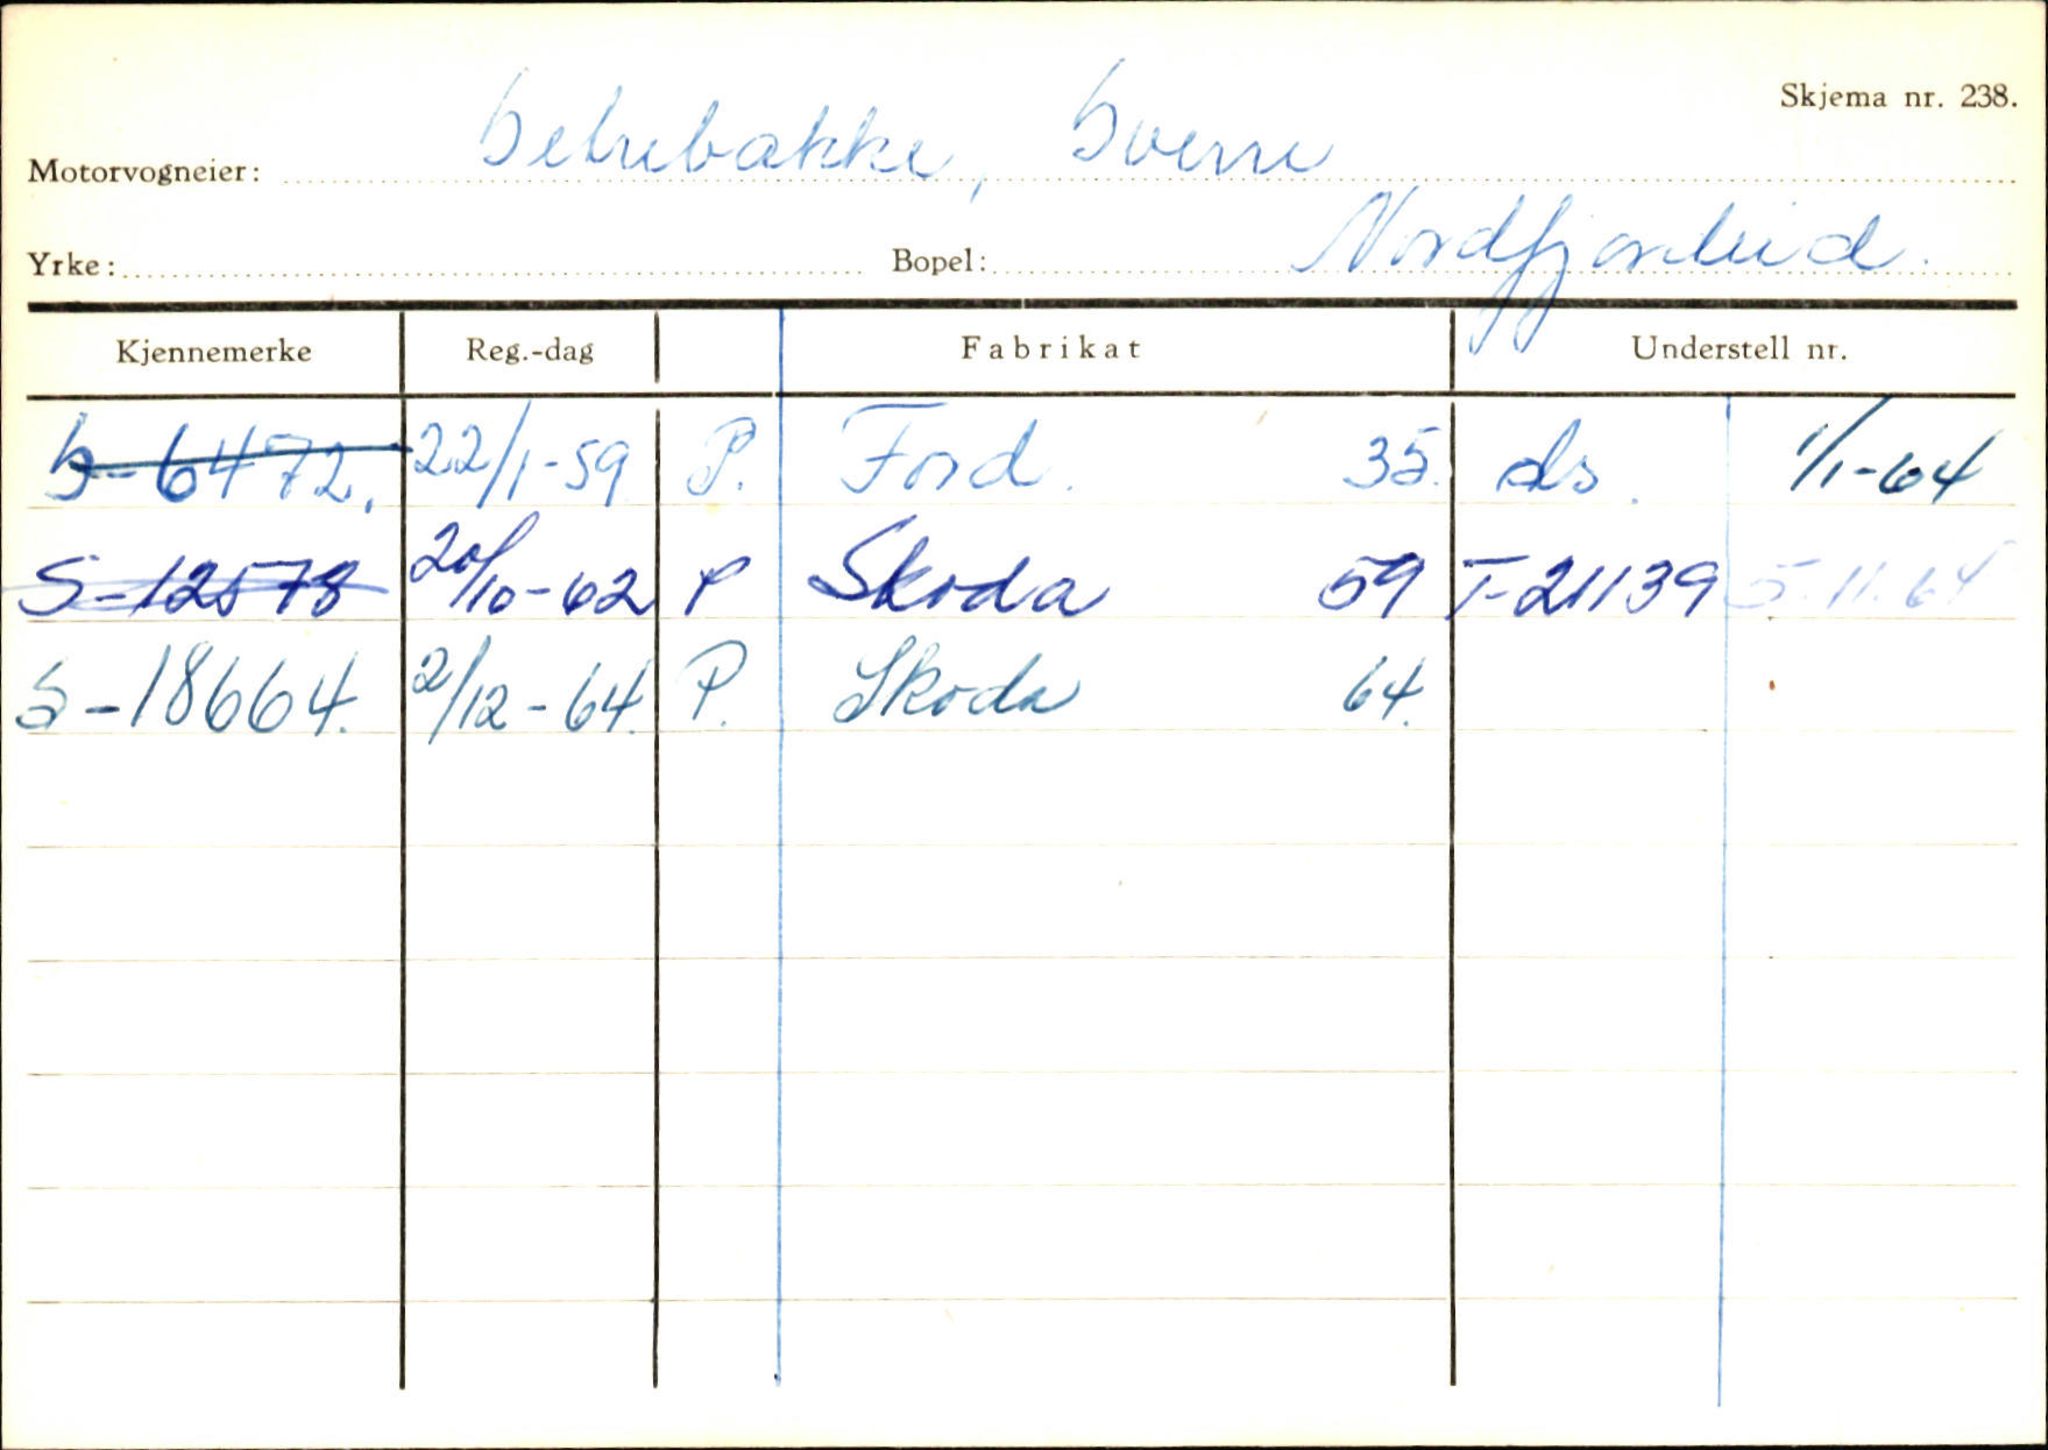 Skjema nr. 238.
Motorvogneier: Setrebakke, Sverre
Yrke: Bopel: Nordfjordeid.
Kjennemerke Reg.-dag Fabrikat Understell nr.
S-6472. 22/1-59 P. Ford. 35. ds. 1/1-64
S-12578 20/10-62 P Skoda 59 T-21139 5-11-64
S-18664. 2/12-64. P. Skoda 64.